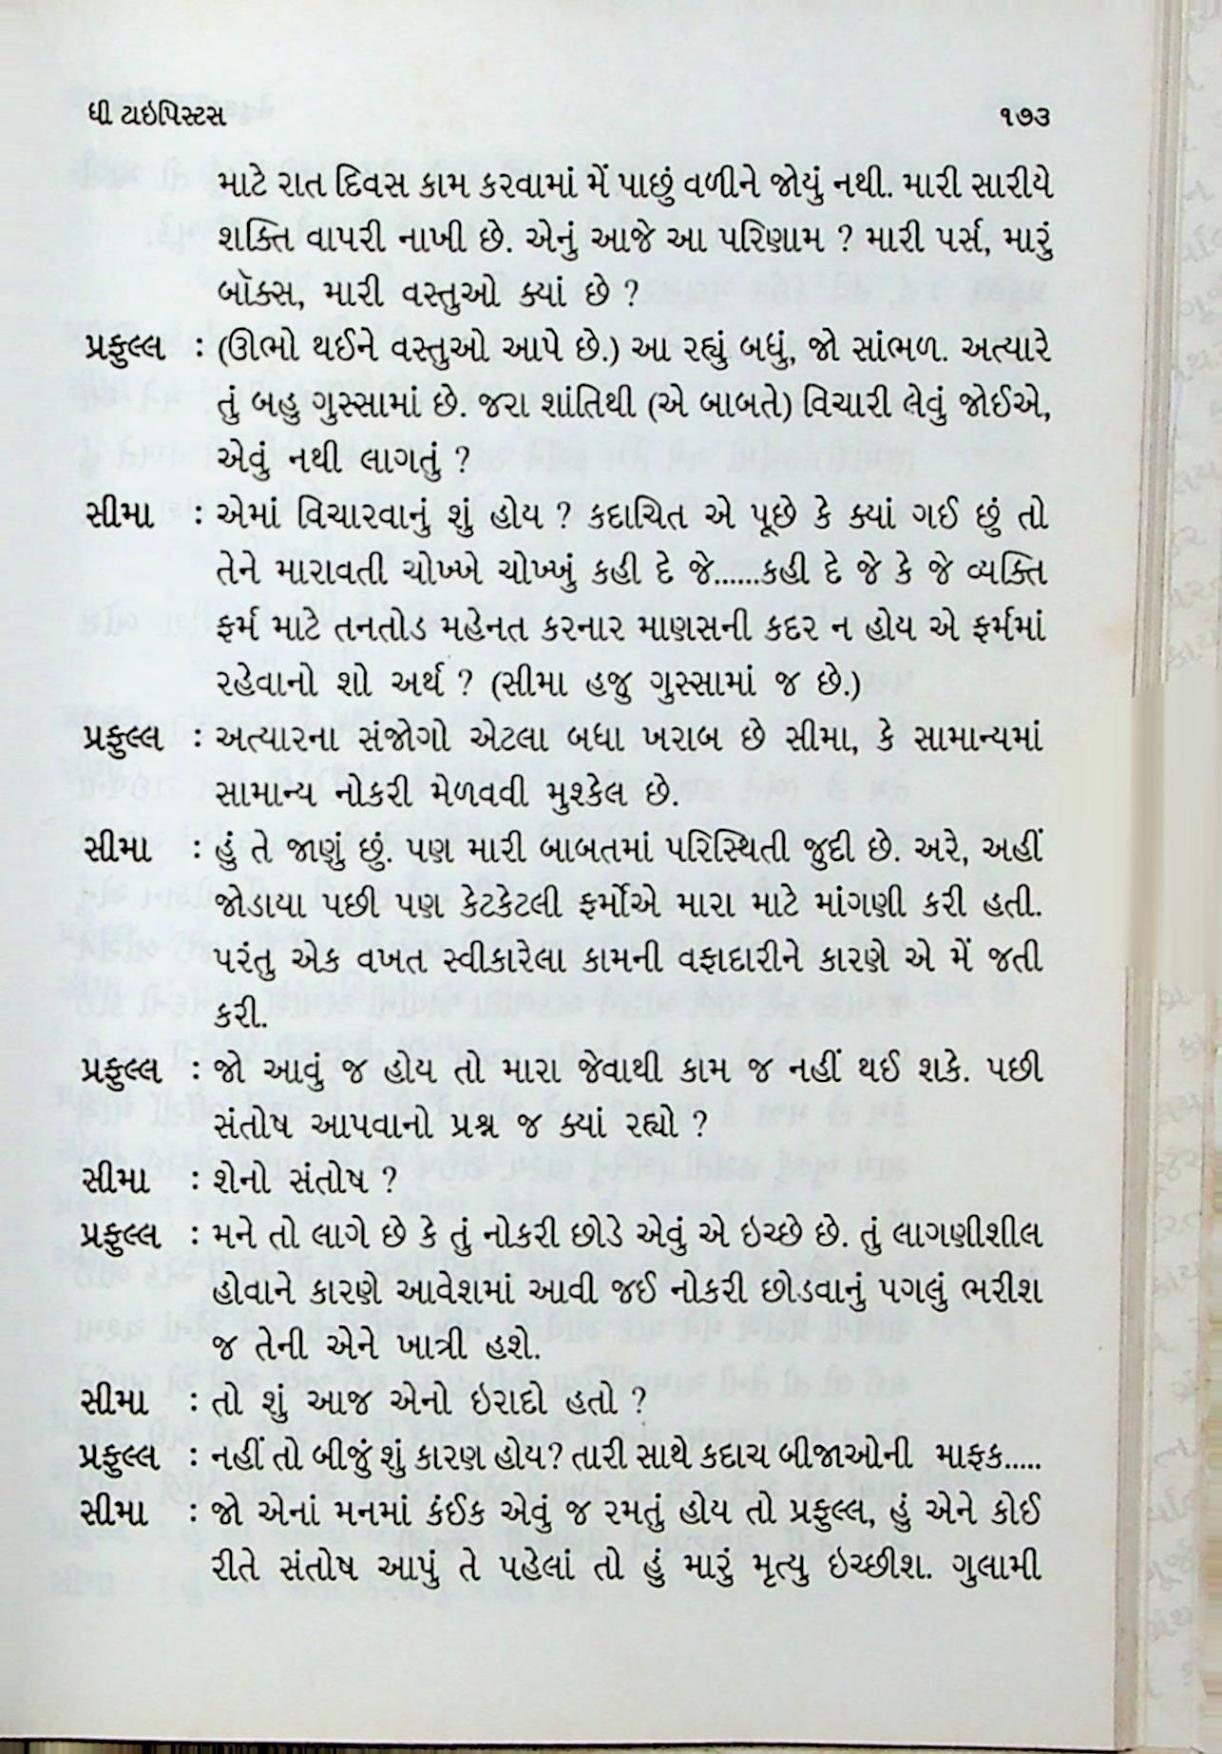 ધી ટાઇપિસ્ટસ ૧૭૩
માટે રાત દિવસ કામ કરવામાં મેં પાછું વળીને જોયું નથી. મારી સારીયે
શક્તિ વાપરી નાખી છે. એનું આજે આ પરિણામ ? મારી પર્સ, મારું
બૉક્સ, મારી વસ્તુઓ ક્યાં છે ?
પ્રફુલ્લ : (ઊભો થઈને વસ્તુઓ આપે છે.) આ રહ્યું બધું, જો સાંભળ. અત્યારે
તું બહુ ગુસ્સામાં છે. જરા શાંતિથી (એ બાબતે) વિચારી લેવું જોઈએ,
એવું નથી લાગતું ?
સીમા : એમાં વિચારવાનું શું હોય ? કદાચિત એ પૂછે કે ક્યાં ગઈ છું તો
તેને મારાવતી ચોખ્ખે ચોખ્ખું કહી દે જે......કહી દે જે કે જે વ્યક્તિ
ફર્મ માટે તનતોડ મહેનત કરનાર માણસની કદર ન હોય એ ફર્મમાં
રહેવાનો શો અર્થ ? (સીમા હજુ ગુસ્સામાં જ છે.)
પ્રફુલ્લ : અત્યારના સંજોગો એટલા બધા ખરાબ છે સીમા, કે સામાન્યમાં
સામાન્ય નોકરી મેળવવી મુશ્કેલ છે.
સીમા : હું તે જાણું છું. પણ મારી બાબતમાં પરિસ્થિતી જુદી છે. અરે, અહીં
જોડાયા પછી પણ કેટકેટલી ફર્મોએ મારા માટે માંગણી કરી હતી.
પરંતુ એક વખત સ્વીકારેલા કામની વફાદારીને કારણે એ મેં જતી
કરી.
પ્રફુલ્લ : જો આવું જ હોય તો મારા જેવાથી કામ જ નહીં થઈ શકે. પછી
સંતોષ આપવાનો પ્રશ્ન જ ક્યાં રહ્યો ?
સીમા : શેનો સંતોષ ?
પ્રફુલ્લ : મને તો લાગે છે કે તું નોકરી છોડે એવું એ ઇચ્છે છે. તું લાગણીશીલ
હોવાને કારણે આવેશમાં આવી જઈ નોકરી છોડવાનું પગલું ભરીશ
જ તેની એને ખાત્રી હશે.
સીમા : તો શું આજ એનો ઇરાદો હતો ?
પ્રફુલ્લ : નહીં તો બીજું શું કારણ હોય? તારી સાથે કદાચ બીજાઓની માફક.....
સીમા : જો એનાં મનમાં કંઈક એવું જ રમતું હોય તો પ્રફુલ્લ, હું એને કોઈ
રીતે સંતોષ આપું તે પહેલાં તો હું મારું મૃત્યુ ઇચ્છીશ. ગુલામી